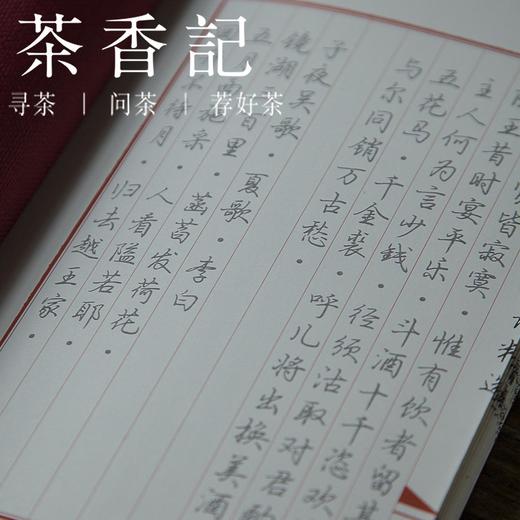 茶香記
寻茶 | 问茶 | 荐好茶
皆寂寞·惟有饮者留其
王昔时宴平乐·斗酒十千恣欢
主人何为言少钱·径须沽取对君酌
五花马·千金裘·呼儿将出换美酒
与尔同销万古愁·
子夜吴歌·夏歌·李白
镜湖百里·菡萏发荷花·
五施采·人看隘若耶·
待月·归去越王家·